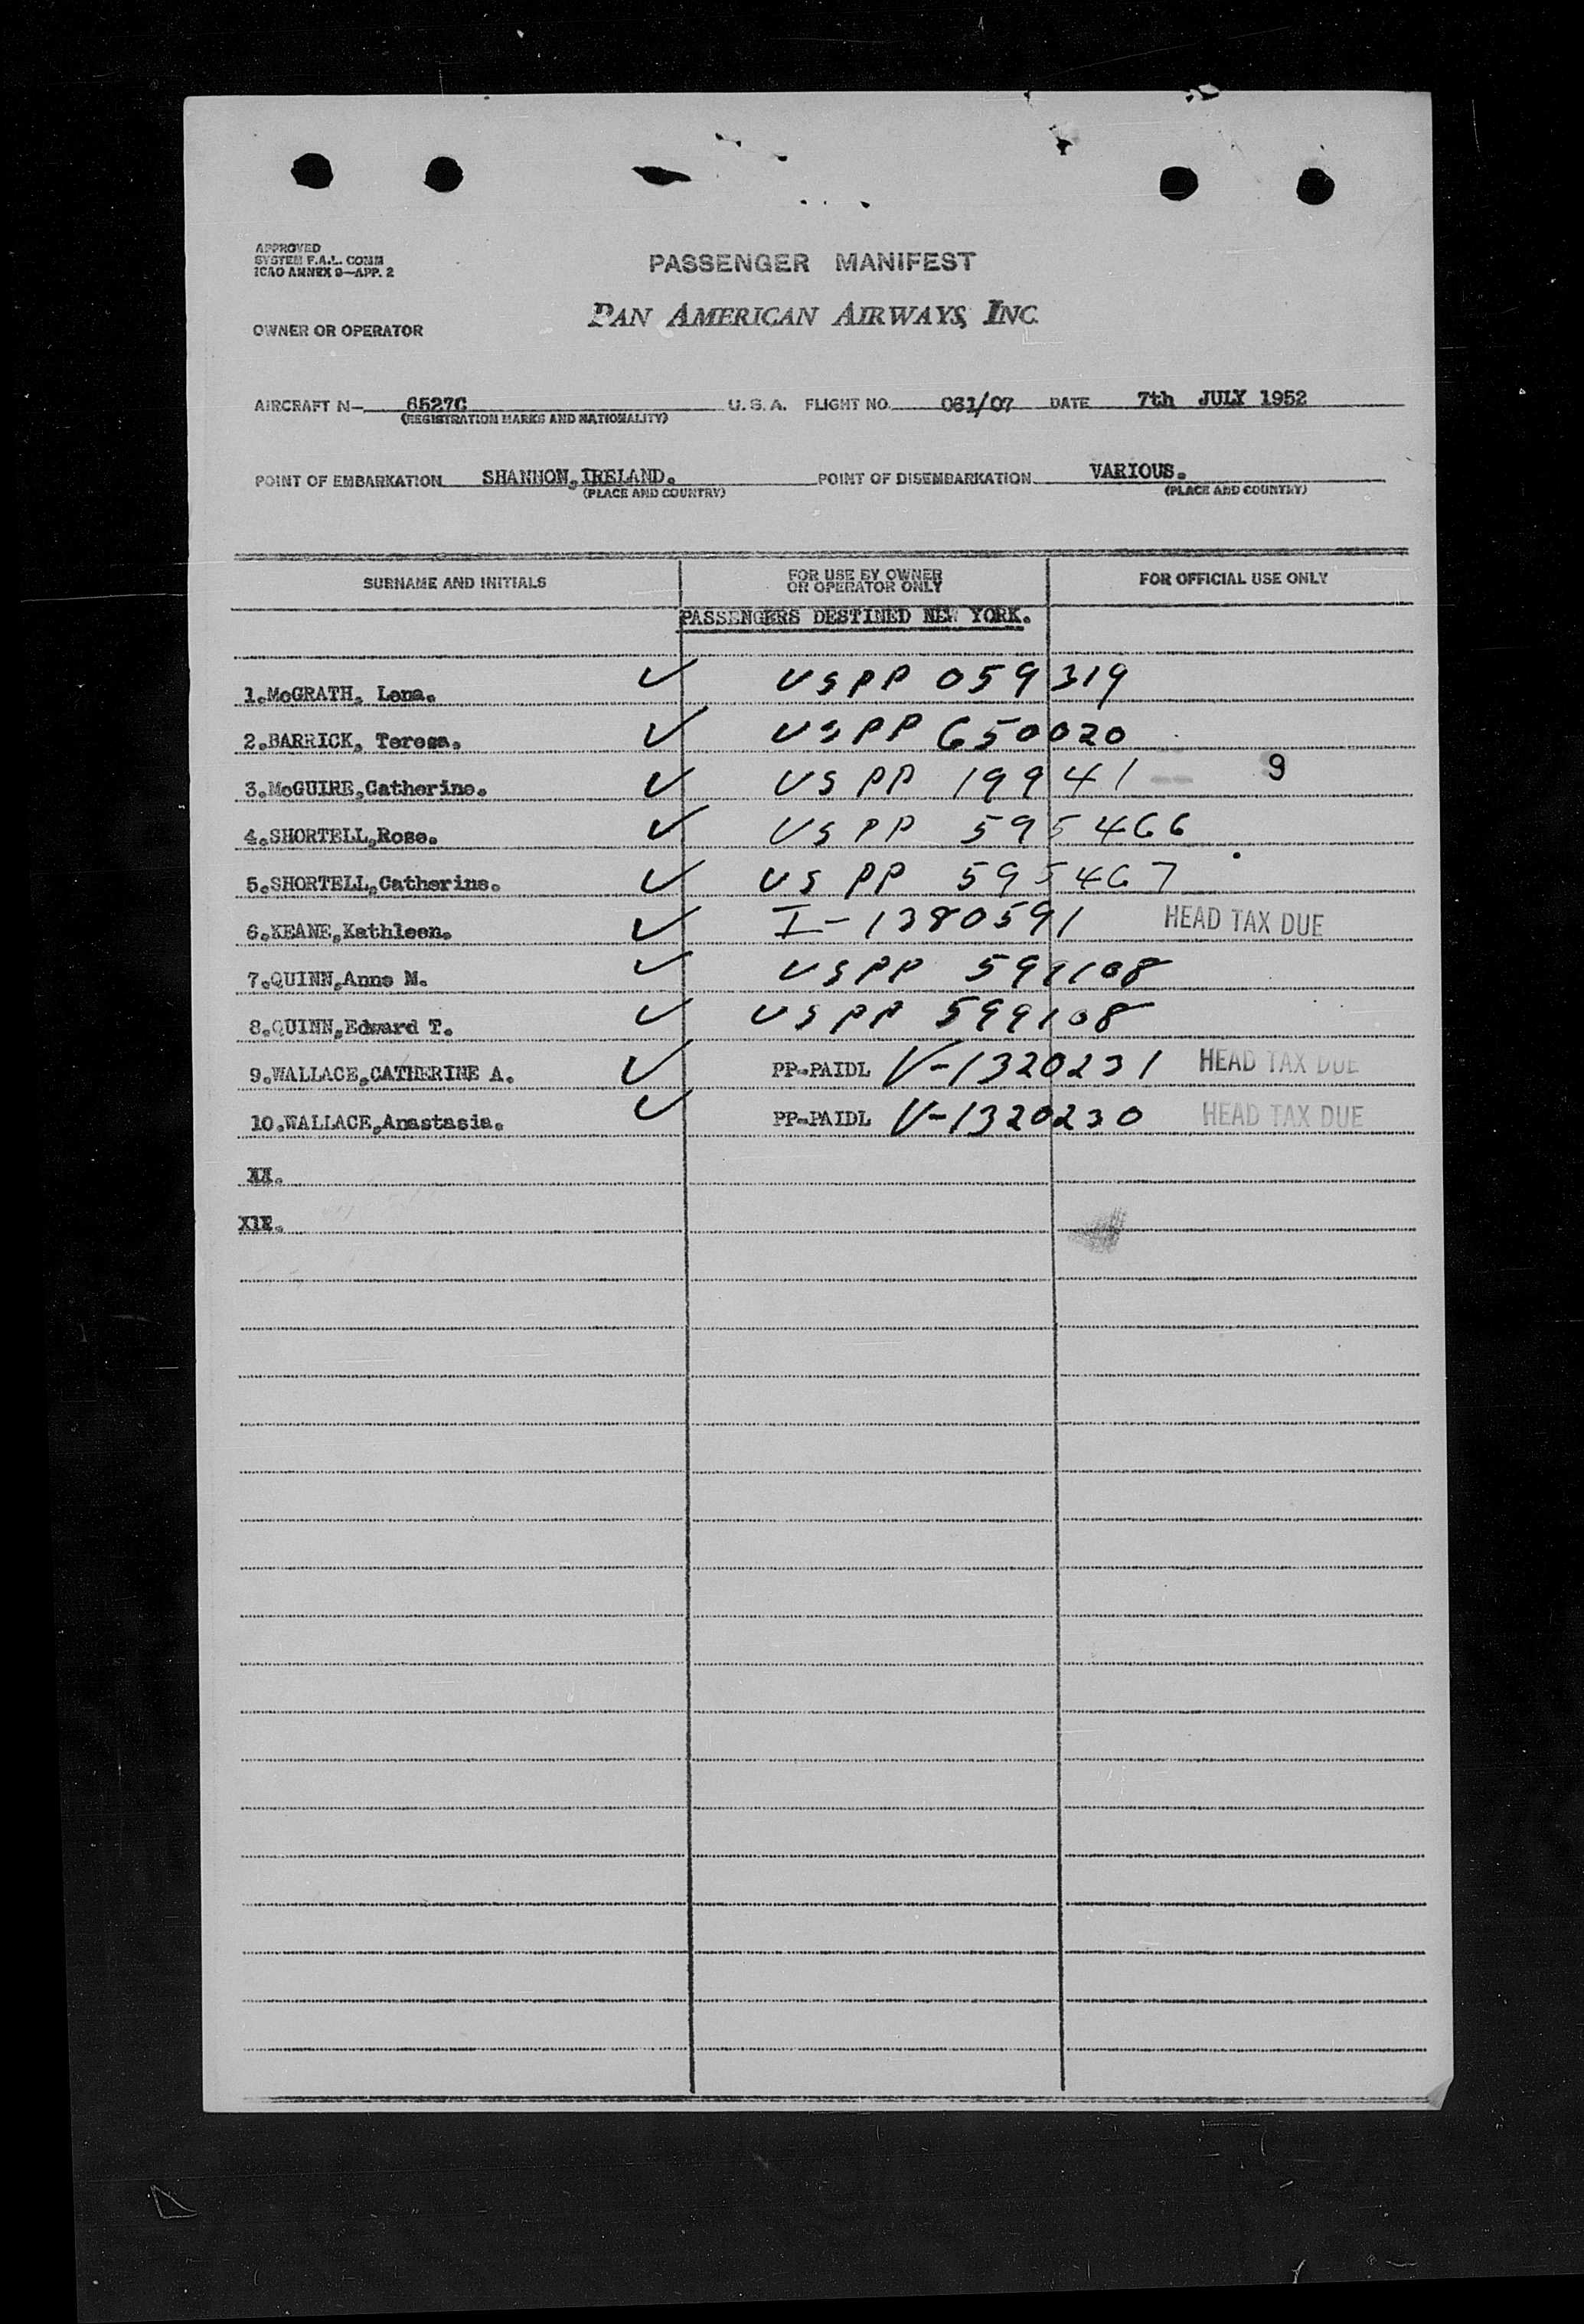 APPROVED
SYSTEM F.A.L. COMM
ICAO ANNEX 9—APP. 2
PASSENGER MANIFEST
OWNER OR OPERATOR
PAN AMERICAN AIRWAYS, INC.
AIRCRAFT N— 6527C U. S. A. FLIGHT NO. 061/07 DATE 7th JULY 1952
(REGISTRATION MARKS AND NATIONALITY)
POINT OF EMBARKATION SHANNON,IRELAND. POINT OF DISEMBARKATION VARIOUS.
(PLACE AND COUNTRY) (PLACE AND COUNTRY)
SURNAME AND INITIALS FOR USE BY OWNER OR OPERATOR ONLY FOR OFFICIAL USE ONLY
PASSENGERS DESTINED NEW YORK.
1.McGRATH, Lena. ✓ USPP 059319
2.BARRICK, Teresa. ✓ USPP 650020
3.McGUIRE,Catherine. ✓ US PP 19941 9
4.SHORTELL,Rose. ✓ US PP 595466
5.SHORTELL,Catherine. ✓ US PP 595467
6.KEANE,Kathleen. ✓ I-1380591 HEAD TAX DUE
7.QUINN,Anne M. ✓ USPP 599108
8.QUINN,Edward T. ✓ USPP 599108
9.WALLACE,CATHERINE A. ✓ PP-PAIDL V-1320231 HEAD TAX DUE
10.WALLACE,Anastasia. ✓ PP-PAIDL V-1320230 HEAD TAX DUE